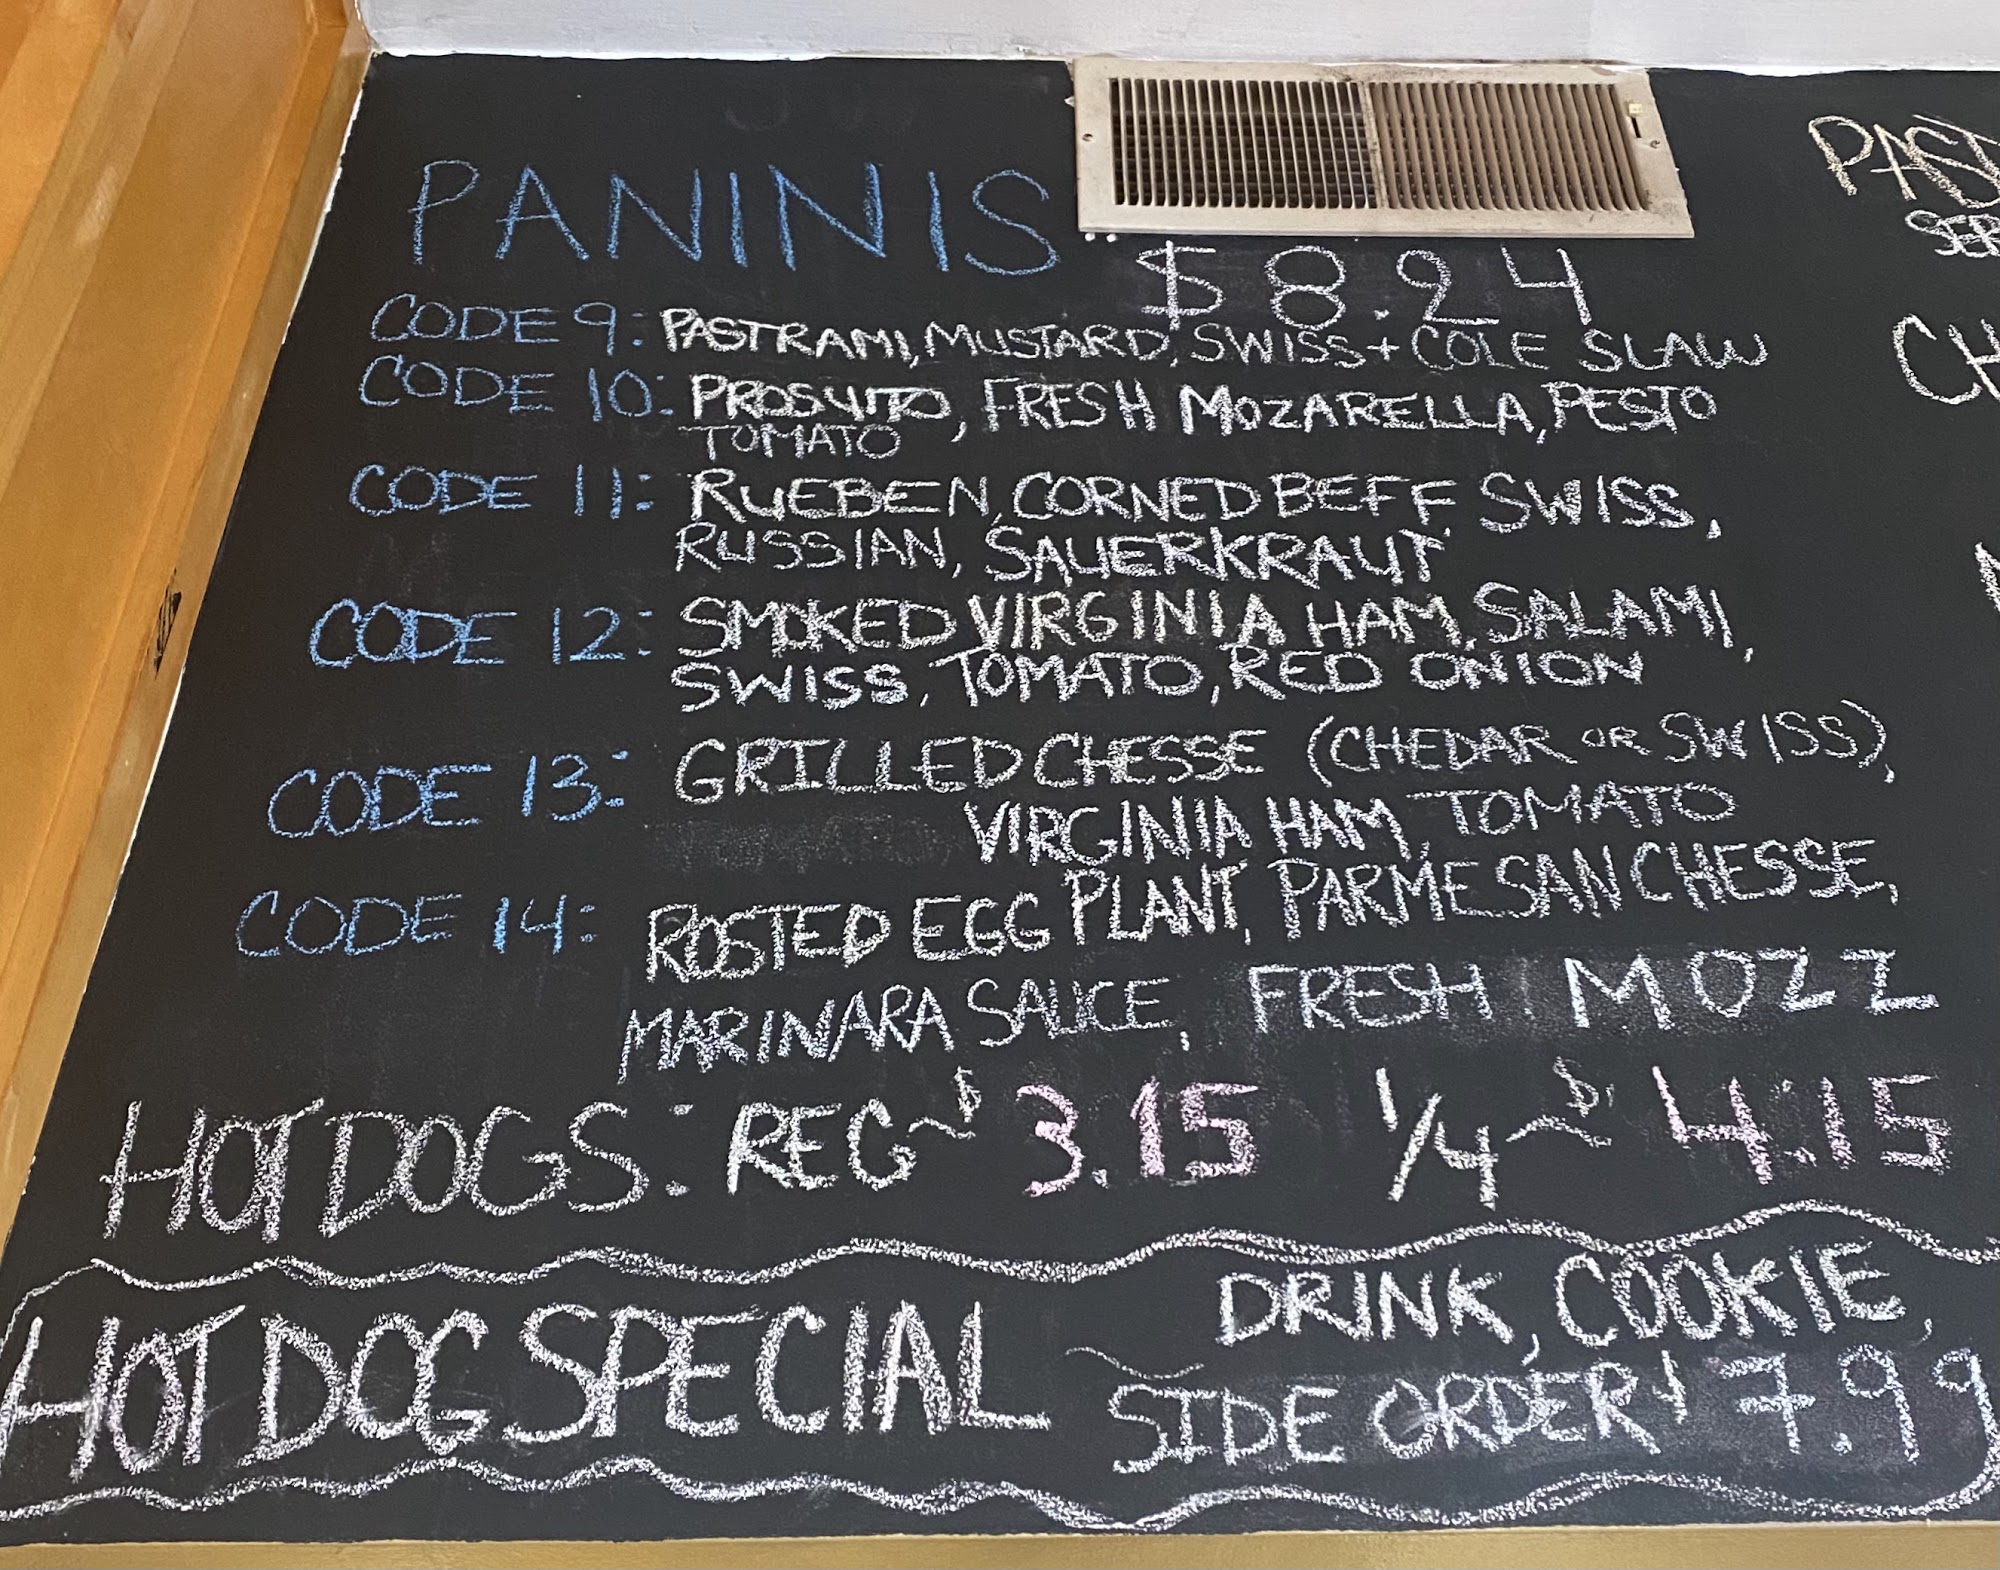 PANINIS
$8.24
CODE 9: PASTRAMI, MUSTARD, SWISS + COLE SLAW
CODE 10: PROSUITO, FRESH MOZARELLA, PESTO
TOMATO
CODE 11: RUEBEN, CORNED BEFF SWISS,
RUSSIAN, SAUERKRAUT
CODE 12: SMOKED VIRGINIA HAM, SALAMI,
SWISS, TOMATO, RED ONION
CODE 13: GRILLED CHESSE (CHEDAR OR SWISS),
VIRGINIA HAM, TOMATO
CODE 14: ROSTED EGG PLANT, PARMESAN CHESSE,
MARINARA SAUCE, FRESH MOZZ
HOT DOGS: REG ~ $3.15 1/4 ~ $4.15
HOT DOG SPECIAL ~ DRINK, COOKIE,
SIDE ORDER! 7.99
PAST
SER
CH